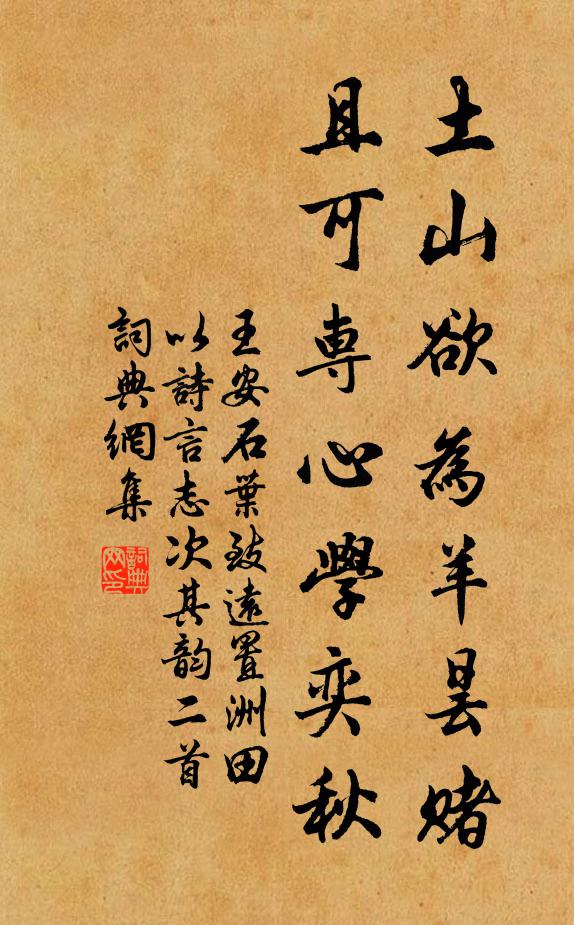 土山欲為羊曇賭
且可専心學奕秋
王安石葉致遠置洲田
以詩言志次其韵二首
詞典網集
詞典網印